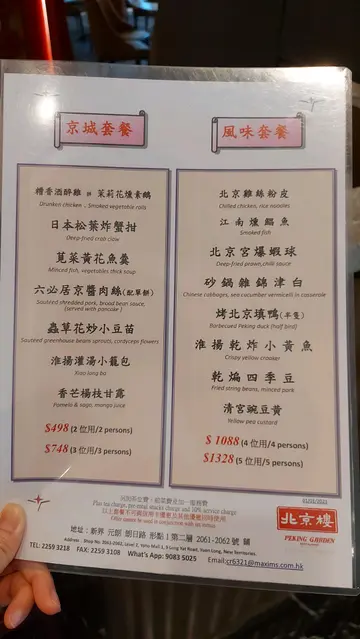 京城套餐
糟香酒醉雞 拼 茉莉花燻素鵝
Drunken chicken , Smoked vegetable rolls
日本松葉炸蟹拑
Deep-fried crab claw
莧菜黃花魚羹
Minced fish, vegetables thick soup
六必居京醬肉絲(配單餅)
Sauteed shredded pork, broad bean sauce,
(served with pancake)
蟲草花炒小豆苗
Sauteed greenhouse beam sprouts, cordycepr flowers
淮揚灌湯小籠包
Xiao long ba
香芒楊枝甘露
Pomelo & sago, mango juice
$498 (2 位用/2 persons)
$748 (3 位用/3 persons)
風味套餐
北京雞絲粉皮
Chilled chicken, rice noodles
江南燻鯧魚
Smoked fish
北京宮爆蝦球
Deep-fried prawn, chili sauce
砂鍋雞錦津白
Chinese cabbages, sea cucumber vermicelli in casserole
烤北京填鴨(半隻)
Barbecued Peking duck (half bird)
淮揚乾炸小黃魚
Crispy yellow croaker
乾煸四季豆
Fried string beans, minced pork
清宮豌豆黃
Yellow pea custard
$1088 (4 位用/4 persons)
$1328 (5 位用/5 persons)
Plus tea charge, pre-meal snacks charge and 10% service charge
Offer cannot be used in conjunction with
北京樓
PEKING GARDEN
地址：新界 元朗 朗日路 形點 I 第二層 2061-2062 號 舖
Address : Shop No. 2061-2062, Level 2, Yoho Mall I, 9 Long Yat Road, Yuen Long, New Territories.
TEL: 2259 3218 FAX: 2259 3108 What's App: 9083 5025 Email:cr6321@maxims.com.hk